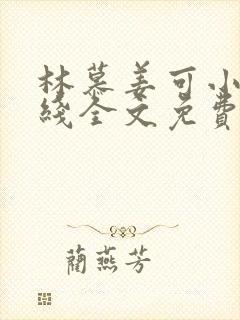 林慕姜可小
綫全文免費
藺燕芳